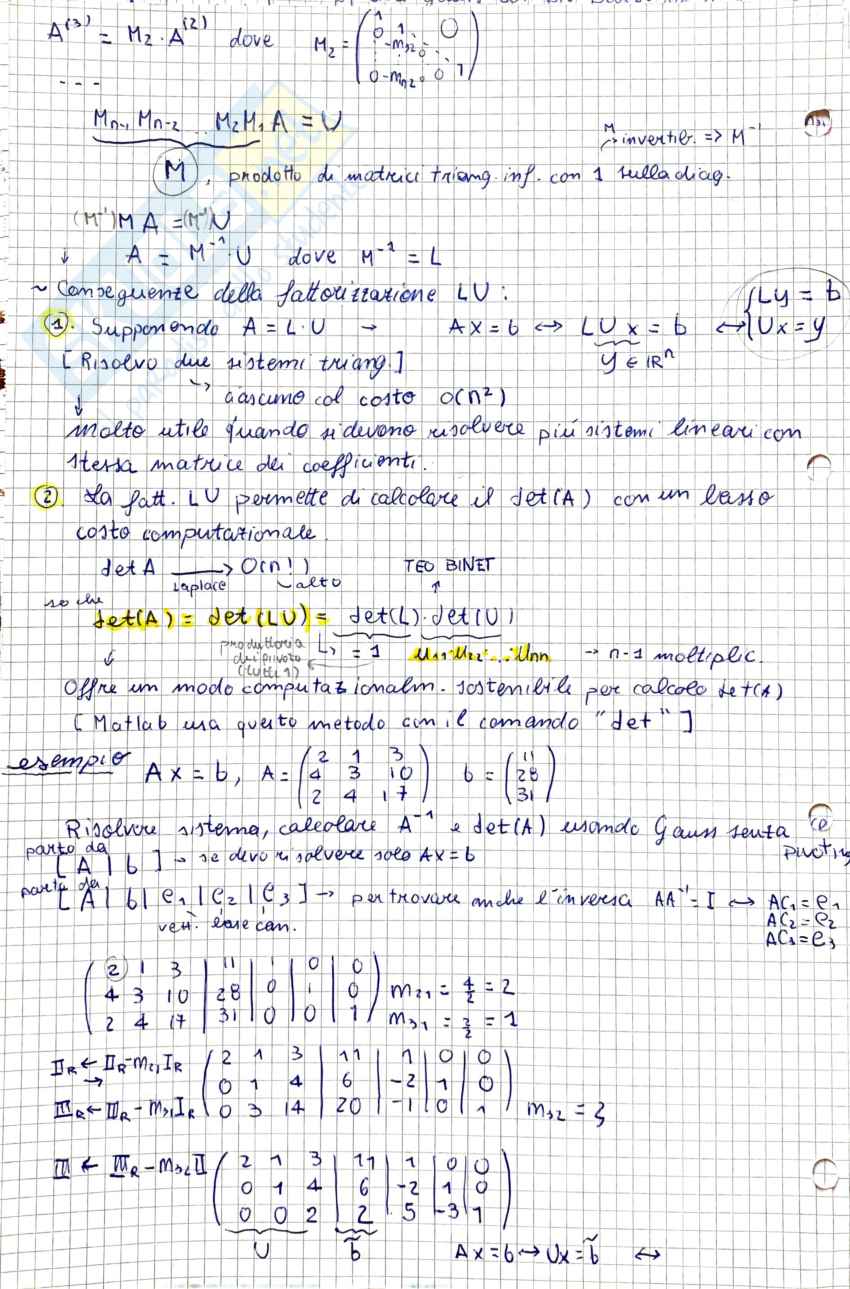 A^(3) = M_2 · A^(2) dove M_2 = ( 1 0 ; 0 1 ; : -m_32 0 ; : : ; 0 -m_n2 0 0 1 )
- - -
M_n-1 M_n-2 ... M_2 M_1 A = U
M invertib. => M^-1
M, prodotto di matrici triang. inf. con 1 sulla diag.
(M^-1) M A = (M^-1) U
↓ A = M^-1 · U dove M^-1 = L
~ Conseguenze della fattorizzazione LU :
(1). Supponendo A = L·U → Ax = b ↔ LUx = b ↔ { Ly = b
Ux = y
[Risolvo due sistemi triang.] y ∈ ℝ^n
↳ ciascuno col costo O(n²)
↓
molto utile quando si devono risolvere più sistemi lineari con
stessa matrice dei coefficienti.
(2). La fatt. LU permette di calcolare il det(A) con un basso
costo computazionale.
det A → Laplace O(n!) alto TEO BINET
so che ↑
det(A) = det(LU) = det(L)·det(U)
produttoria
dei pivot
(tutti 1) ↳ = 1 u_11·u_22·...u_nn → n-1 moltiplic.
↓
Offre un modo computazionalm. sostenibile per calcolo det(A)
[Matlab usa questo metodo con il comando "det"]
esempio Ax = b, A = ( 2 1 3 ; 4 3 10 ; 2 4 17 ) b = ( 11 ; 28 ; 31 )
Risolvere sistema, calcolare A^-1 e det(A) usando Gauss senza
pivoting
parto da [A | b] → se devo risolvere solo Ax = b
parto da [A | b | e_1 | e_2 | e_3] → per trovare anche l'inversa AA^-1 = I ↔ AC_1 = e_1
AC_2 = e_2
AC_3 = e_3
vett. base can.
( 2 1 3 | 11 | 1 | 0 | 0
4 3 10 | 28 | 0 | 1 | 0 m_21 = 4/2 = 2
2 4 17 | 31 | 0 | 0 | 1 ) m_31 = 2/2 = 1
II_R ← II_R - m_21 I_R ( 2 1 3 | 11 | 1 | 0 | 0
→ 0 1 4 | 6 | -2 | 1 | 0
III_R ← III_R - m_31 I_R 0 3 14 | 20 | -1 | 0 | 1 ) m_32 = 3
III ← III_R - m_32 II ( 2 1 3 | 11 | 1 | 0 | 0
0 1 4 | 6 | -2 | 1 | 0
0 0 2 | 2 | 5 | -3 | 1 )
U b̃ Ax = b → Ux = b̃ ↔